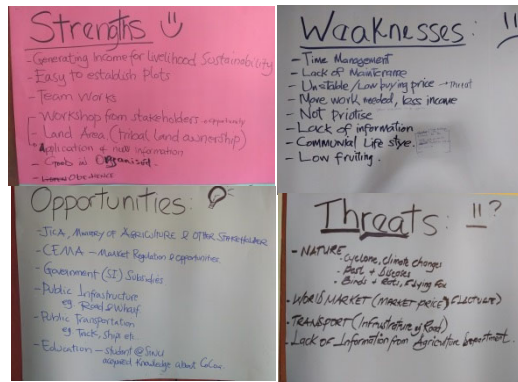 Strengths
- Generating Income for Livelihood Sustainability
- Easy to establish Plots
- Team Works
- Workshop from stakeholders → opportunity
- Land Area (tribal land ownership)
* Application of new information
- Goals is Organised.
Weaknesses:
- Time Management
- Lack of Maintenance
- Unstable/Low buying price → Threat
- More work needed, less income
- Not priotise
- Lack of information
- Communial Life style.
- Low fruiting.
Opportunities:
- JICA, Ministry of AGRICULTURE & OTHER STAKEHOLDER
- CEMA - Market Regulation & opportunities
- Government (SI) Subsidies
- Public Infrastructure
eg Road & Wharf.
- Public Transportation
eg Truck, ship etc.
- Education - student @
acquired knowledge about CoCoa
Threats: ?
- NATURE
- cyclone, climate changes
- Pest + Diseases
- Birds + Rats, Flying Fox
- WORLD MARKET (MARKET PRICE) FLUCTURE)
- TRANSPORT (Infrastruture of Road)
- Lack of Information from Agriculture Department.